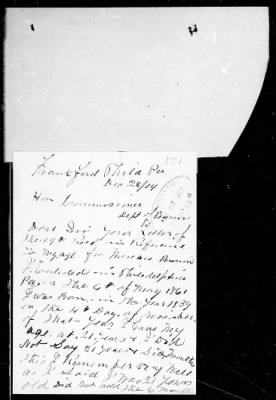 Frankford Phila Pa
Dec 28/14
Hon Commissioner
Dept of
Dear Sir your Letter of
the 19th Recd in Reference
to my age for Increase
I Enlisted in Philadelphia
Pa on the 6th of May 1861
I was Born in the Year 1839
on the 4th Day of November
of that Year I gave my
age at 21 years & I Did
Not Say 21 years & Six months
this I Remember very well
as I Said I was 21 years
old Did not add the 6 months